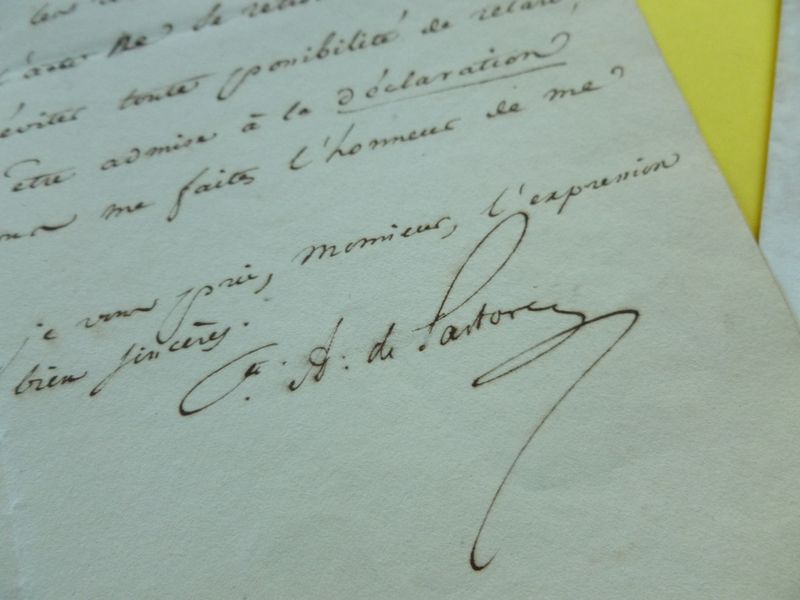 se
éviter toute possibilité de retard,
être admise à la déclaration
me faites l'honneur de me
je vous prie, Monsieur, l'expression
bien sincères.
A. de Pastoret